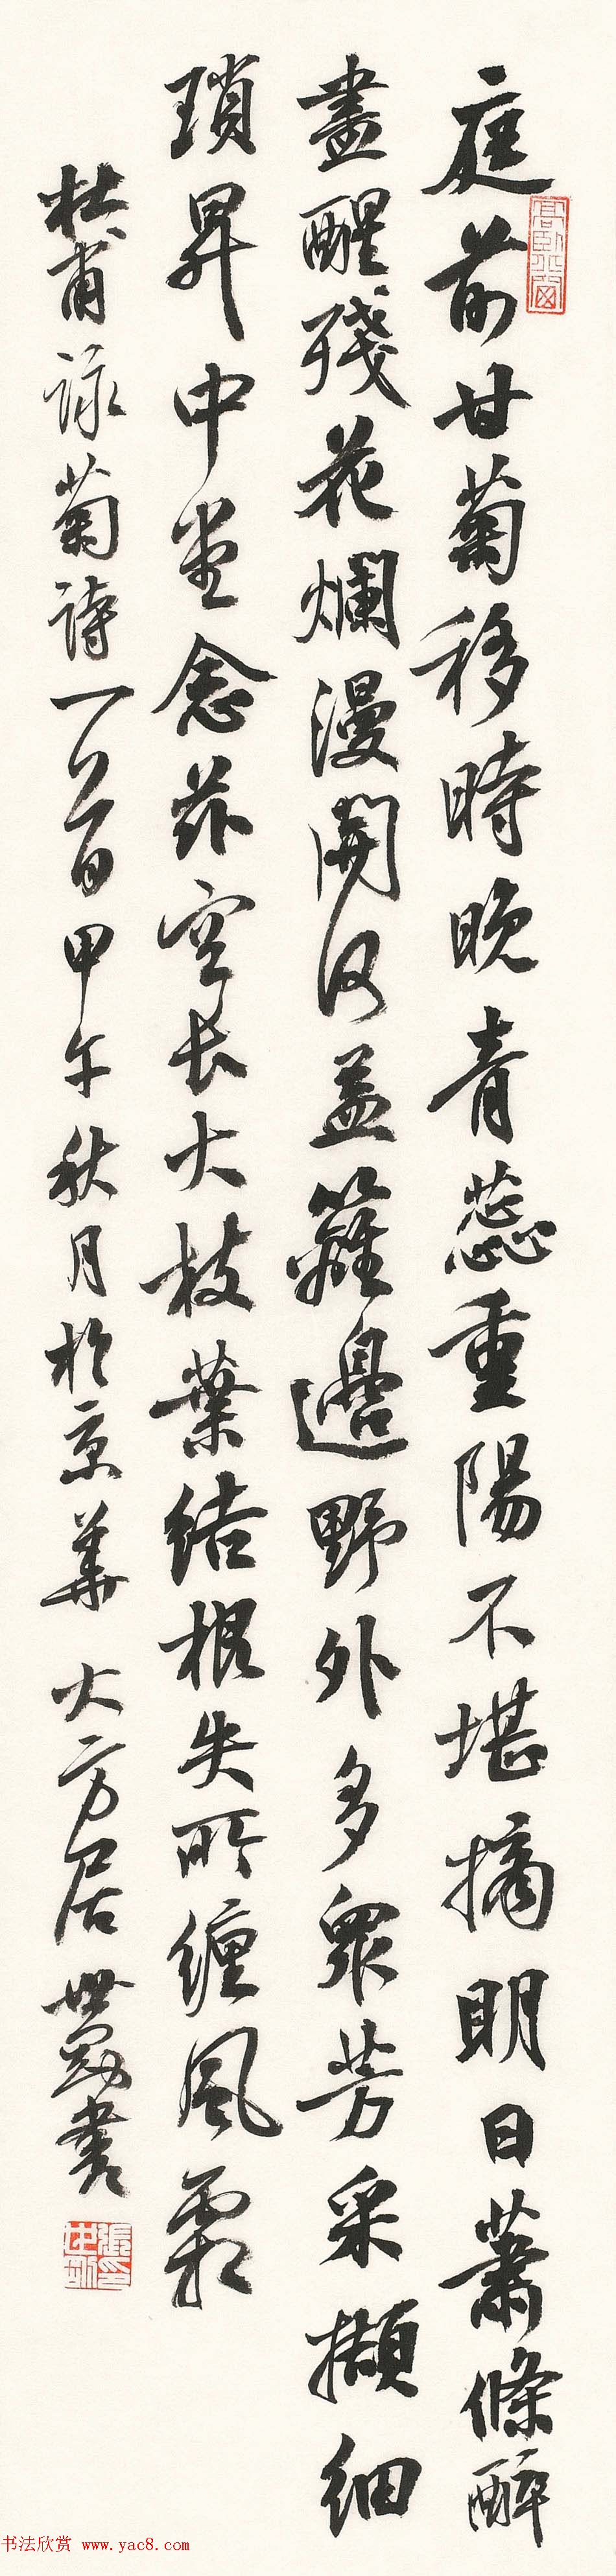 庭前甘菊移時晚青蕊重陽不堪摘明日蕭條醉
盡醒殘花爛漫開何益籬邊野外多眾芳采擷細
瑣昇中堂念茲空長大枝葉結根失所纏風霜
杜甫詠菊詩一首甲午秋月於京華 大方居 世剛書
书法欣赏 www.yac8.com